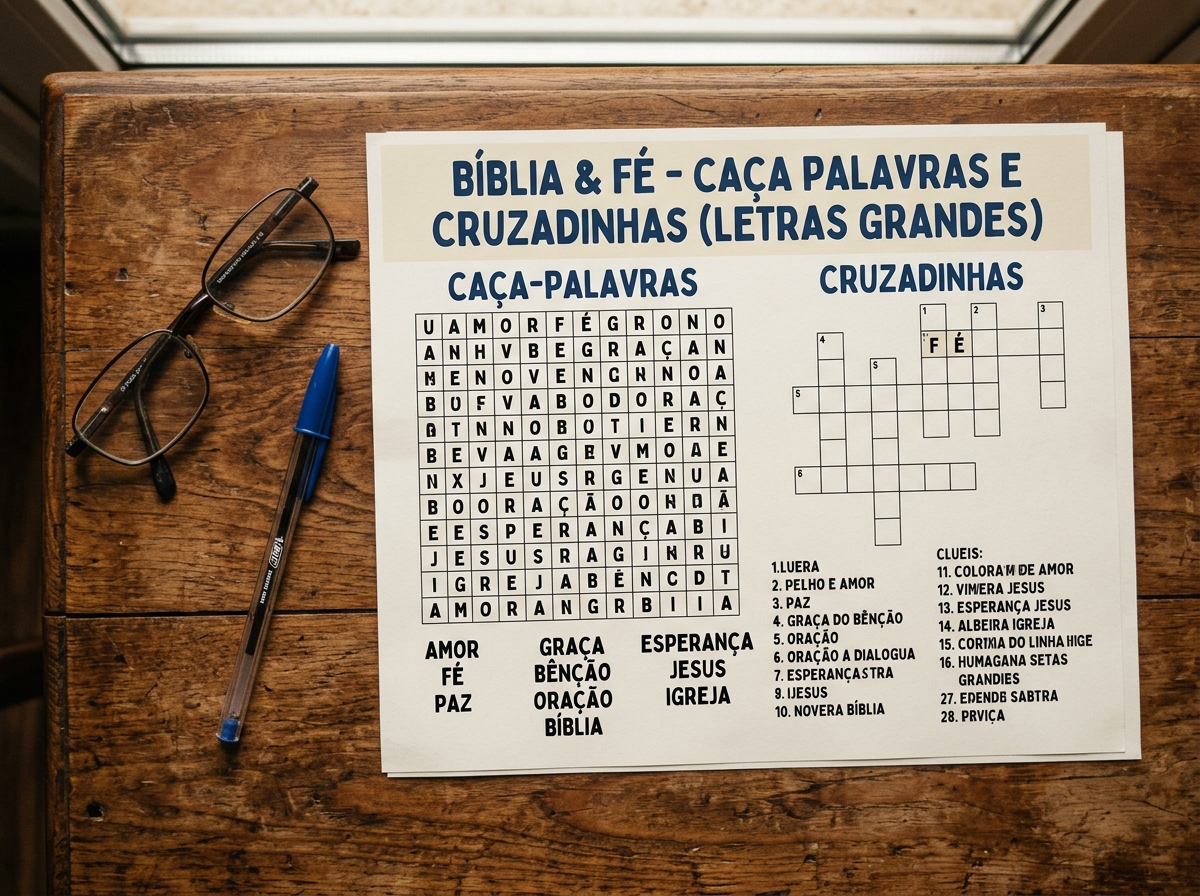 BÍBLIA & FÉ - CAÇA PALAVRAS E
CRUZADINHAS (LETRAS GRANDES)
CAÇA-PALAVRAS
U A M O R F É G R O N O
A N H V B E G R A Ç A N
M E N O V E N G K N O A
B O F V A B O D O R A Ç
B T N N O B O T I E R N
B E V A A G E V M O A E
N X J E U S R G E N U A
B O O R A Ç Ã O O N D Ã
E E S P E R A N Ç A B I
J E S U S R A G J N R U
I G R E J A B Ê N C D T
A M O R A N G R B I I A
AMOR
FÉ
PAZ
GRAÇA
BÊNÇÃO
ORAÇÃO
BÍBLIA
ESPERANÇA
JESUS
IGREJA
CRUZADINHAS
1 2 3
4 F É
5
5
6
1.LUERA
2. PELHO E AMOR
3. PAZ
4. GRAÇA DO BÊNÇÃO
5. ORAÇÃO
6. ORAÇÃO A DIALOGUA
7. ESPERANÇASTRA
9. IJESUS
10. NOVERA BÍBLIA
CLUEIS:
11. COLORAM DE AMOR
12. VIMERA JESUS
13. ESPERANÇA JESUS
14. ALBEIRA IGREJA
15. CORTMA DO LINHA HIGE
16. HUMAGANA SETAS
GRANDIES
27. EDENDB SABTRA
28. PRVIÇA